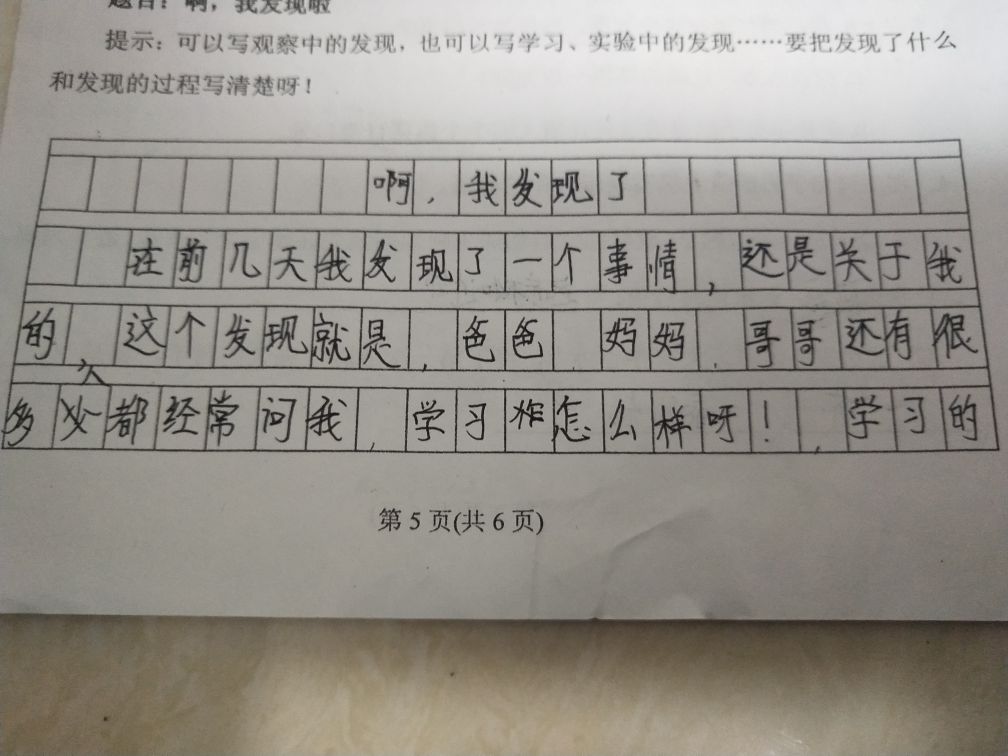 题目：啊，我发现啦
提示：可以写观察中的发现，也可以写学习、实验中的发现……要把发现了什么
和发现的过程写清楚呀！
啊，我发现了
在前几天我发现了一个事情，还是关于我
的，这个发现就是，爸爸，妈妈，哥哥还有很
多人都经常问我，学习怎么样呀！，学习的
第5页(共6页)